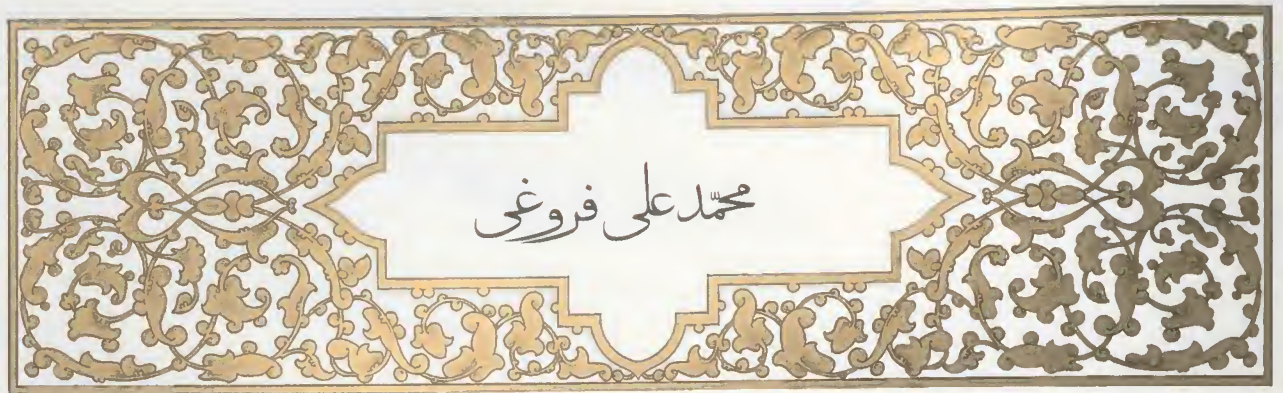 محمّد علی فروغی